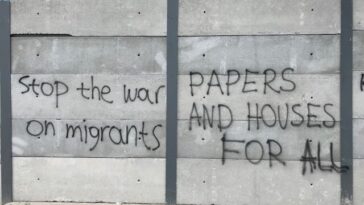 Stop the war
on migrants
PAPERS
AND HOUSES
FOR ALL